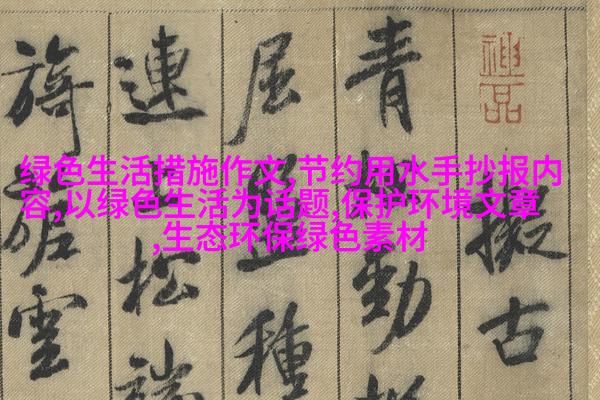 绿色生活措施作文,节约用水手抄报内
容,以绿色生活为话题,保护环境文章
,生态环保绿色素材
神品
擬古
青松勁
屈盤種
連上松端
旖旎雲